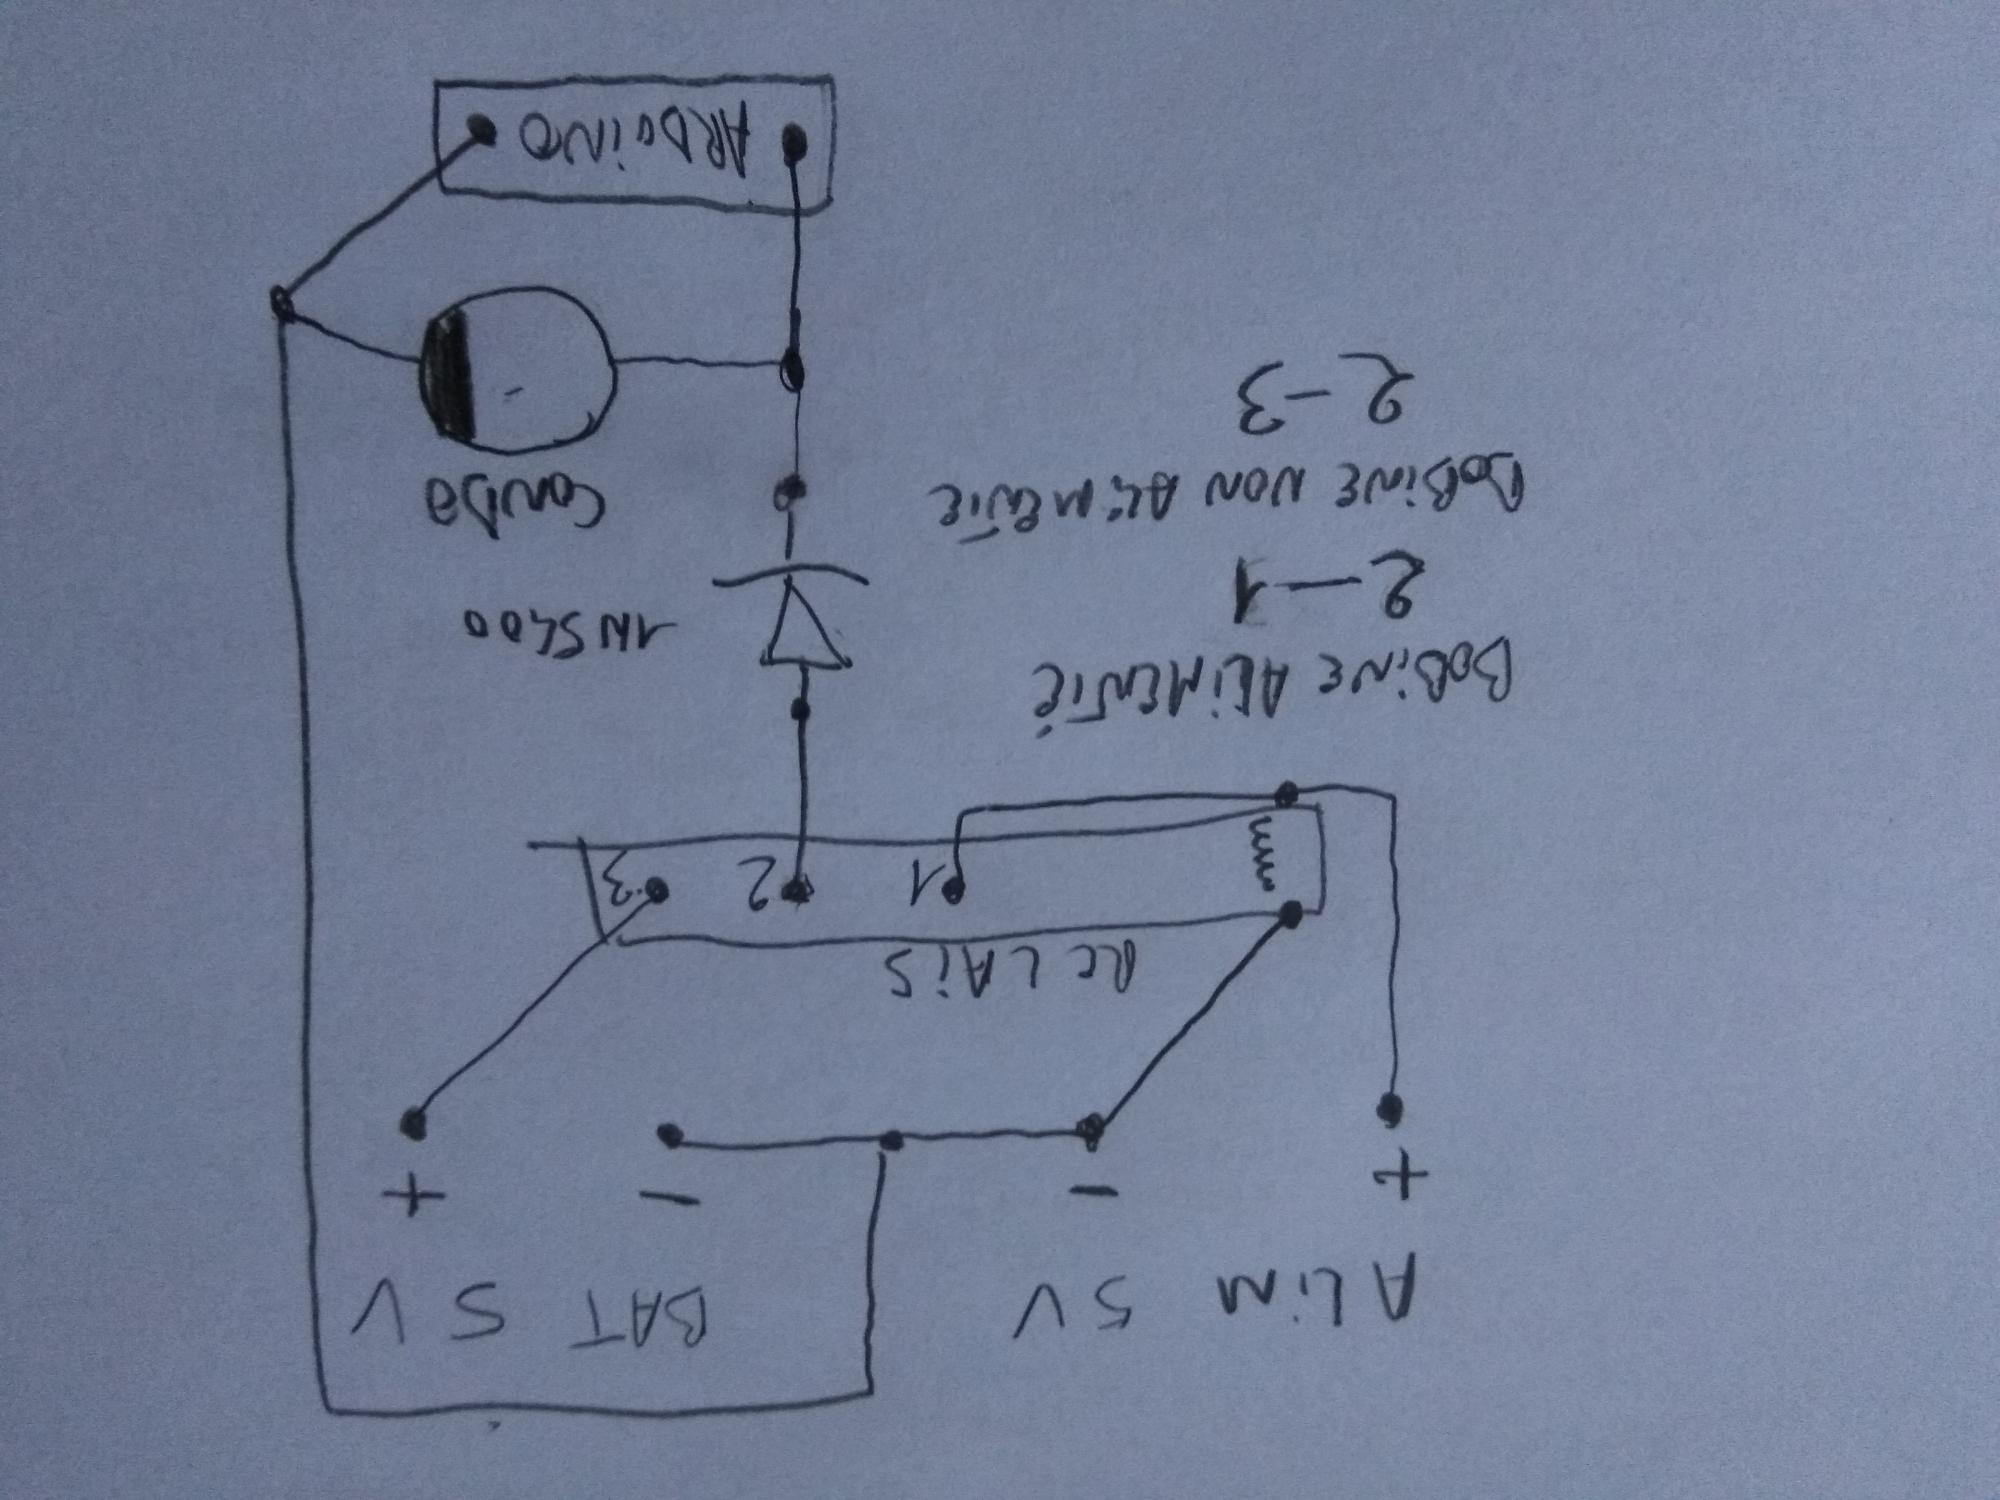 ALiM 5V BAT 5 V
+ - - +
RELAiS
1 2 3
BOBiNE ALiMENTÉ
2-1
1N5400
BOBiNE NON ALiMENTIE
2-3
CONDO
ARDUiNO